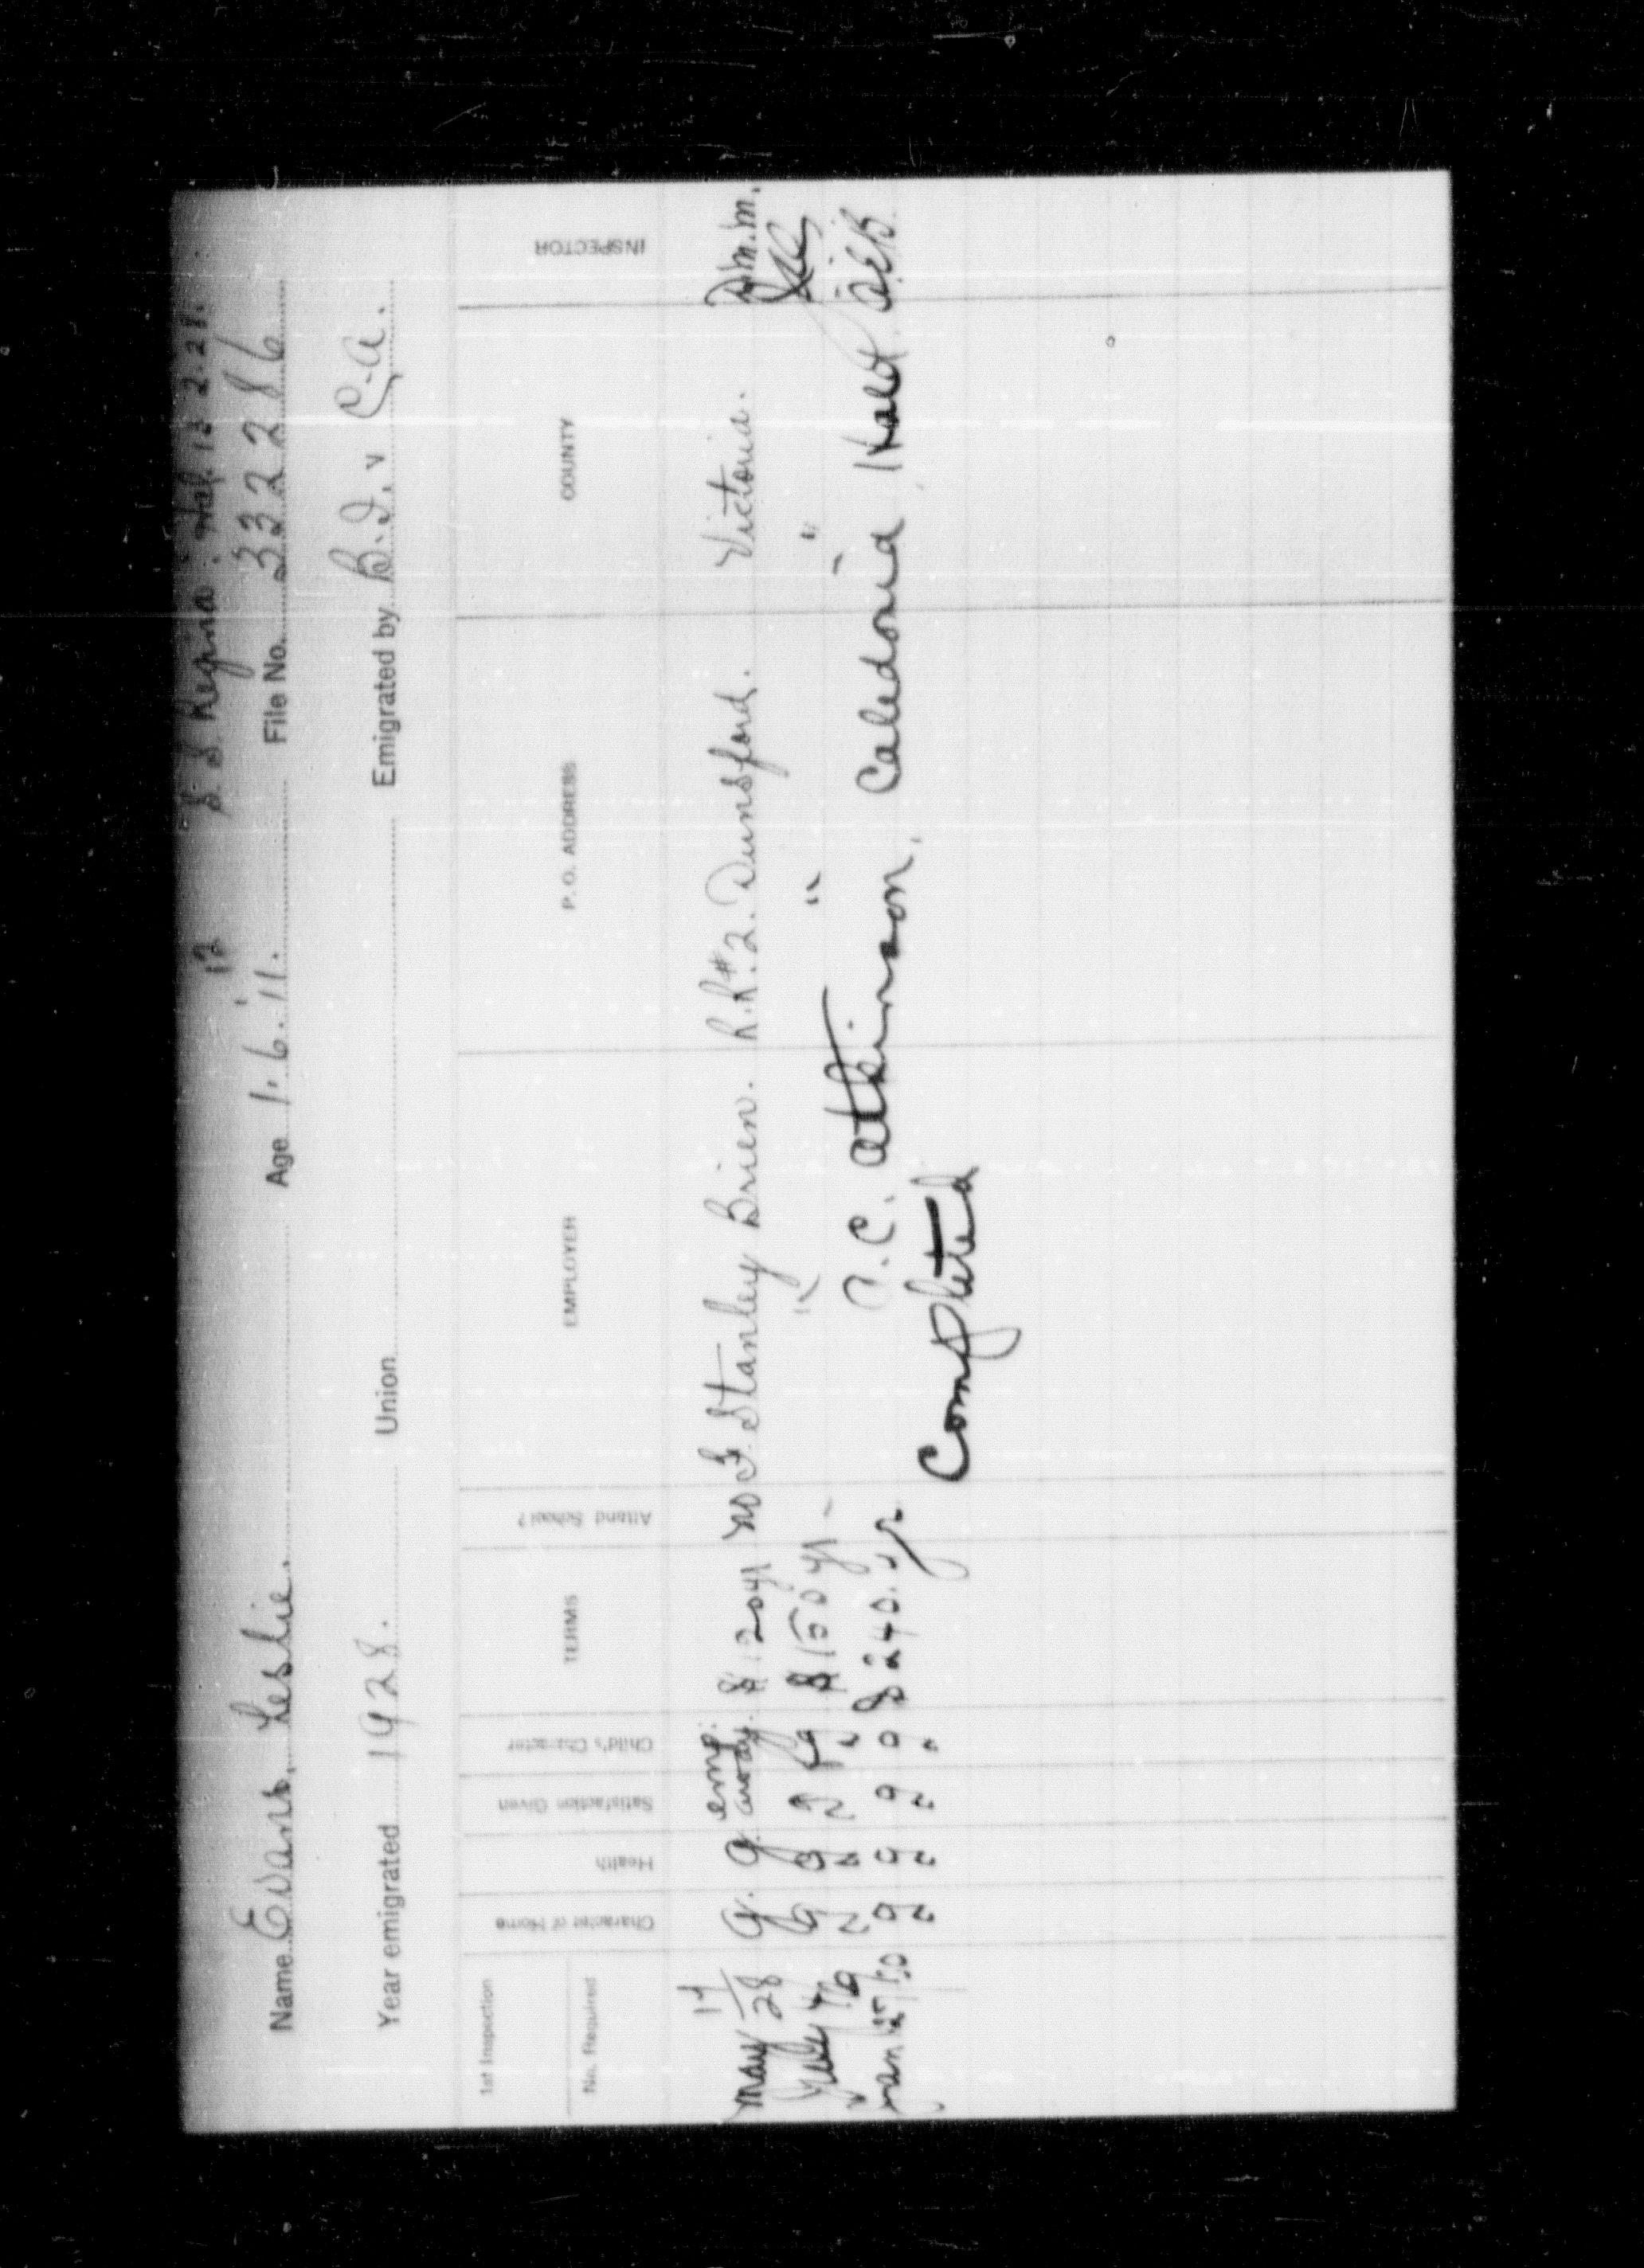 12 S.S. Regina Hal. 12.2.28.
Name Evans, Leslie. Age 1.6.'11. File No. 332286
Year emigrated 1928. Union Emigrated by B.I. C.A.
1st Inspection
No. Required
Character of Home Health Satisfaction Given Child's Character TERMS Attend School? EMPLOYER P. O. ADDRESS COUNTY INSPECTOR
May 17/28 g. g. emp. away. $120 yr no F. Stanley Brien. R.R.#2. Dunsford. Victoria. D.M.M.
July 4/29 g g $150 yr - " " "
Jan 27/30 g g g g $240. yr A.C. Atkinson, Caledonia Hald
Completed